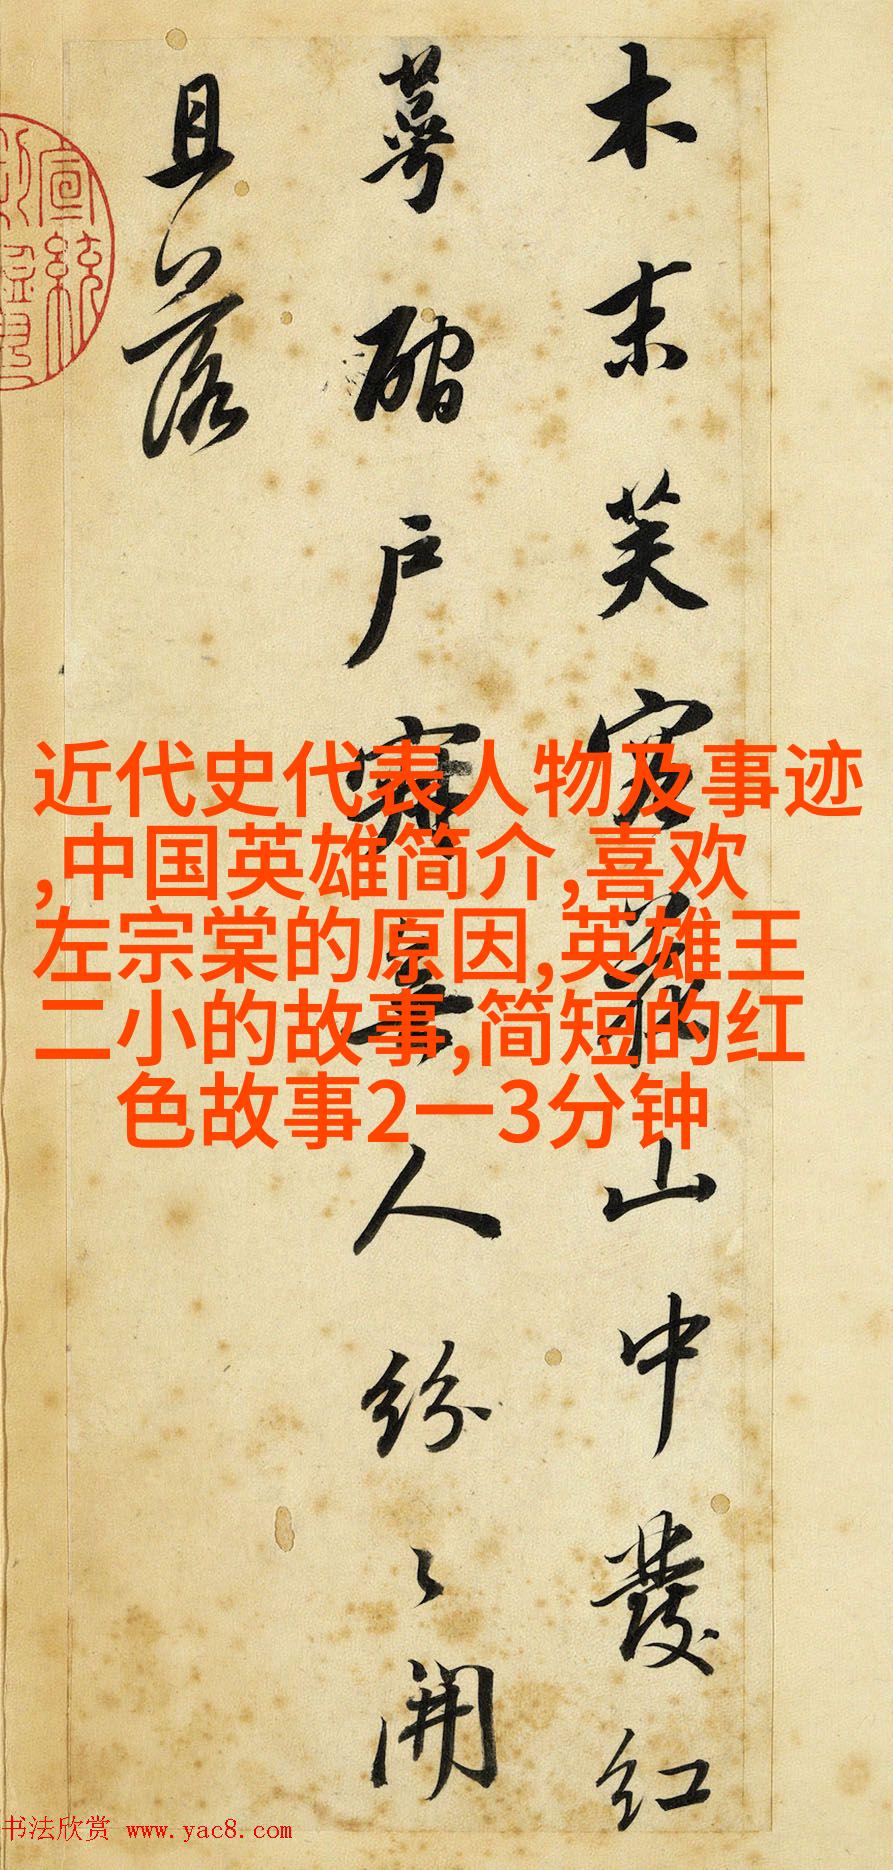 木末芙容花山中發紅
萼磵户寂無人紛〻開
且落
宣統
近代史代表人物及事迹
,中国英雄简介,喜欢
左宗棠的原因,英雄王
二小的故事,简短的红
色故事2一3分钟
书法欣赏 www.yac8.com